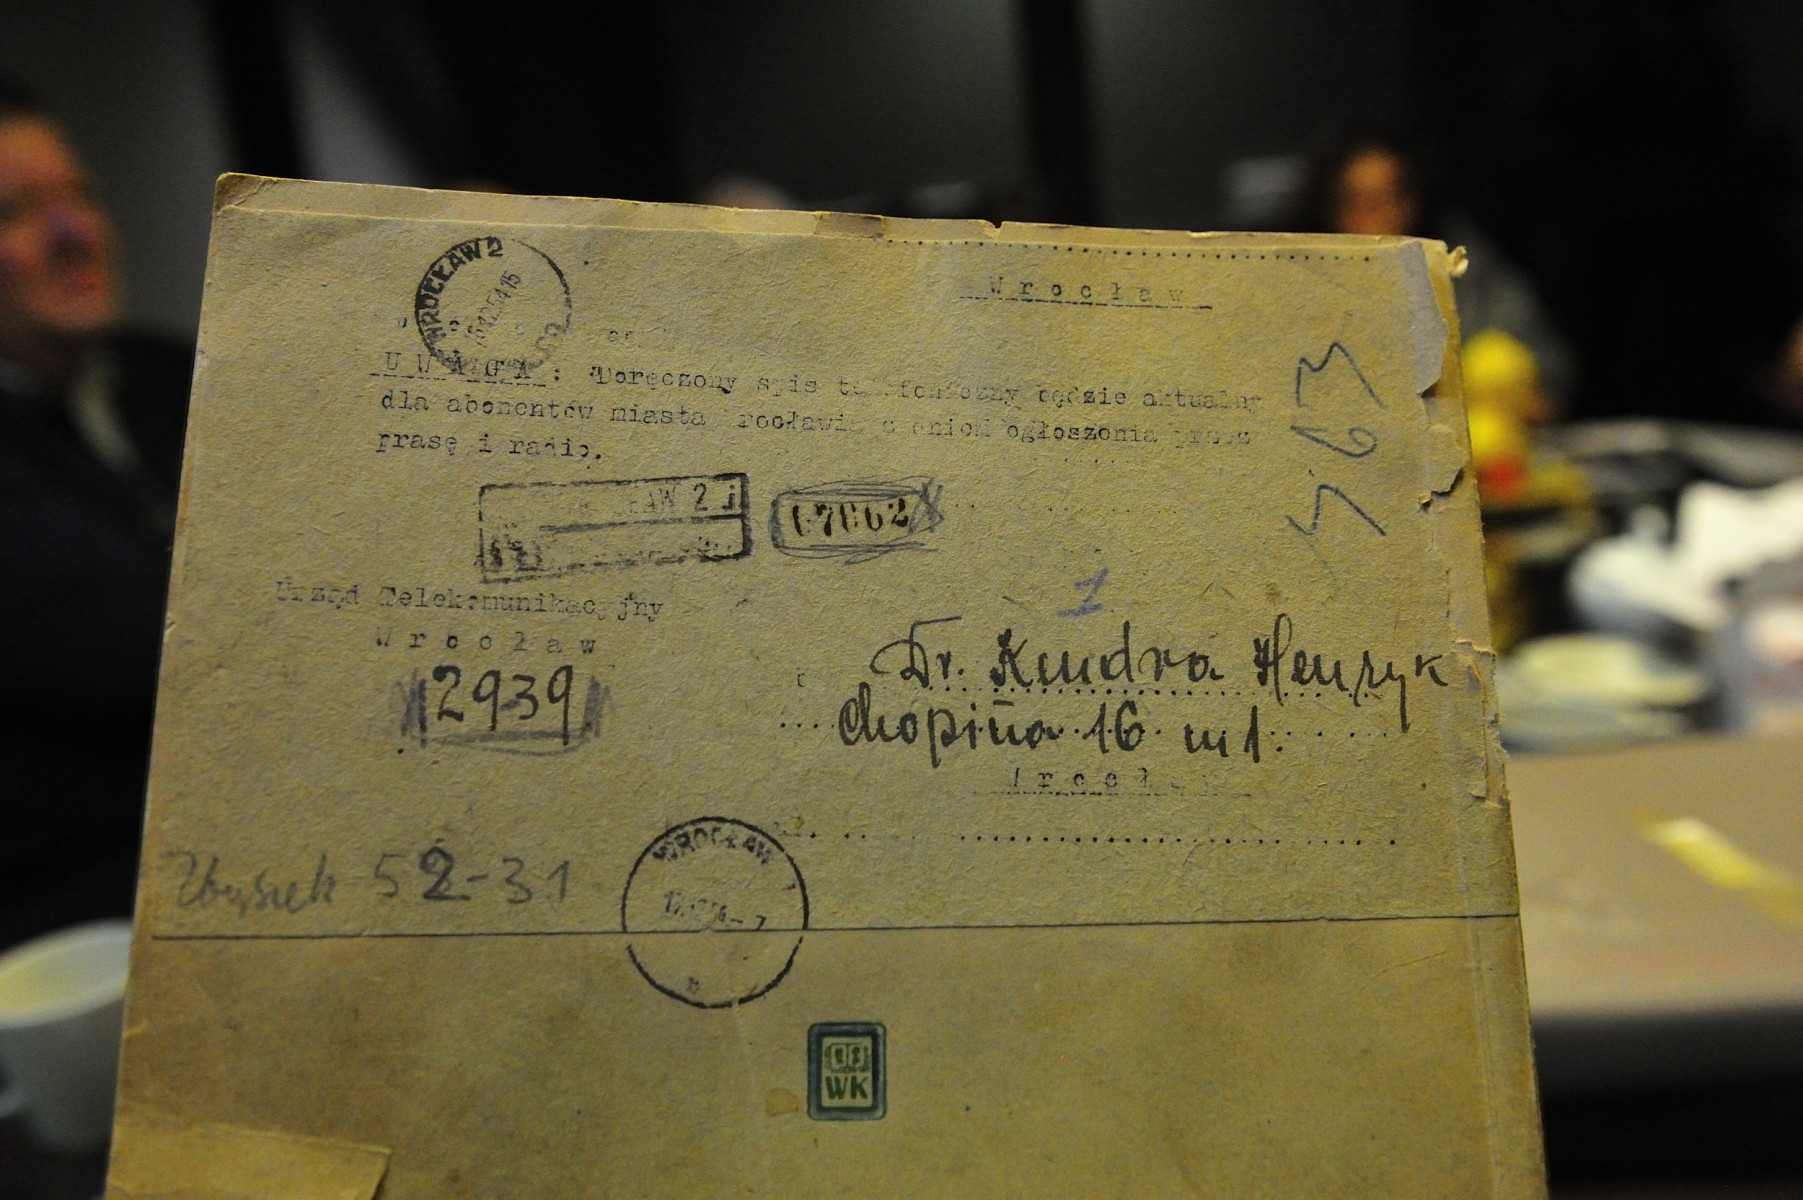 WROCŁAW 2
Wrocław
UWAGA: Doręczony spis telefoniczny będzie aktualny
dla abonentów miasta Wrocławia z dniem ogłoszenia przez
prasę i radio.
WROCŁAW 2
67862
Urząd Telekomunikacyjny
Wrocław
2939
1
Dr. Kendra Henryk
Chopina 16 m 1.
Wrocław
Zbyszek 52-31
WROCŁAW 1
WK